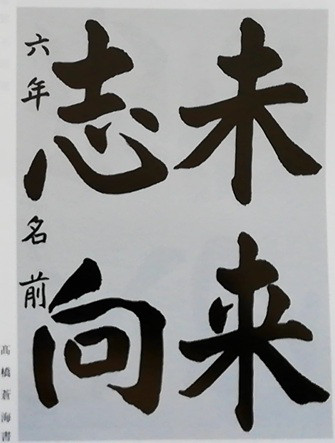 未来
志向
六年 名前
高橋蒼海書